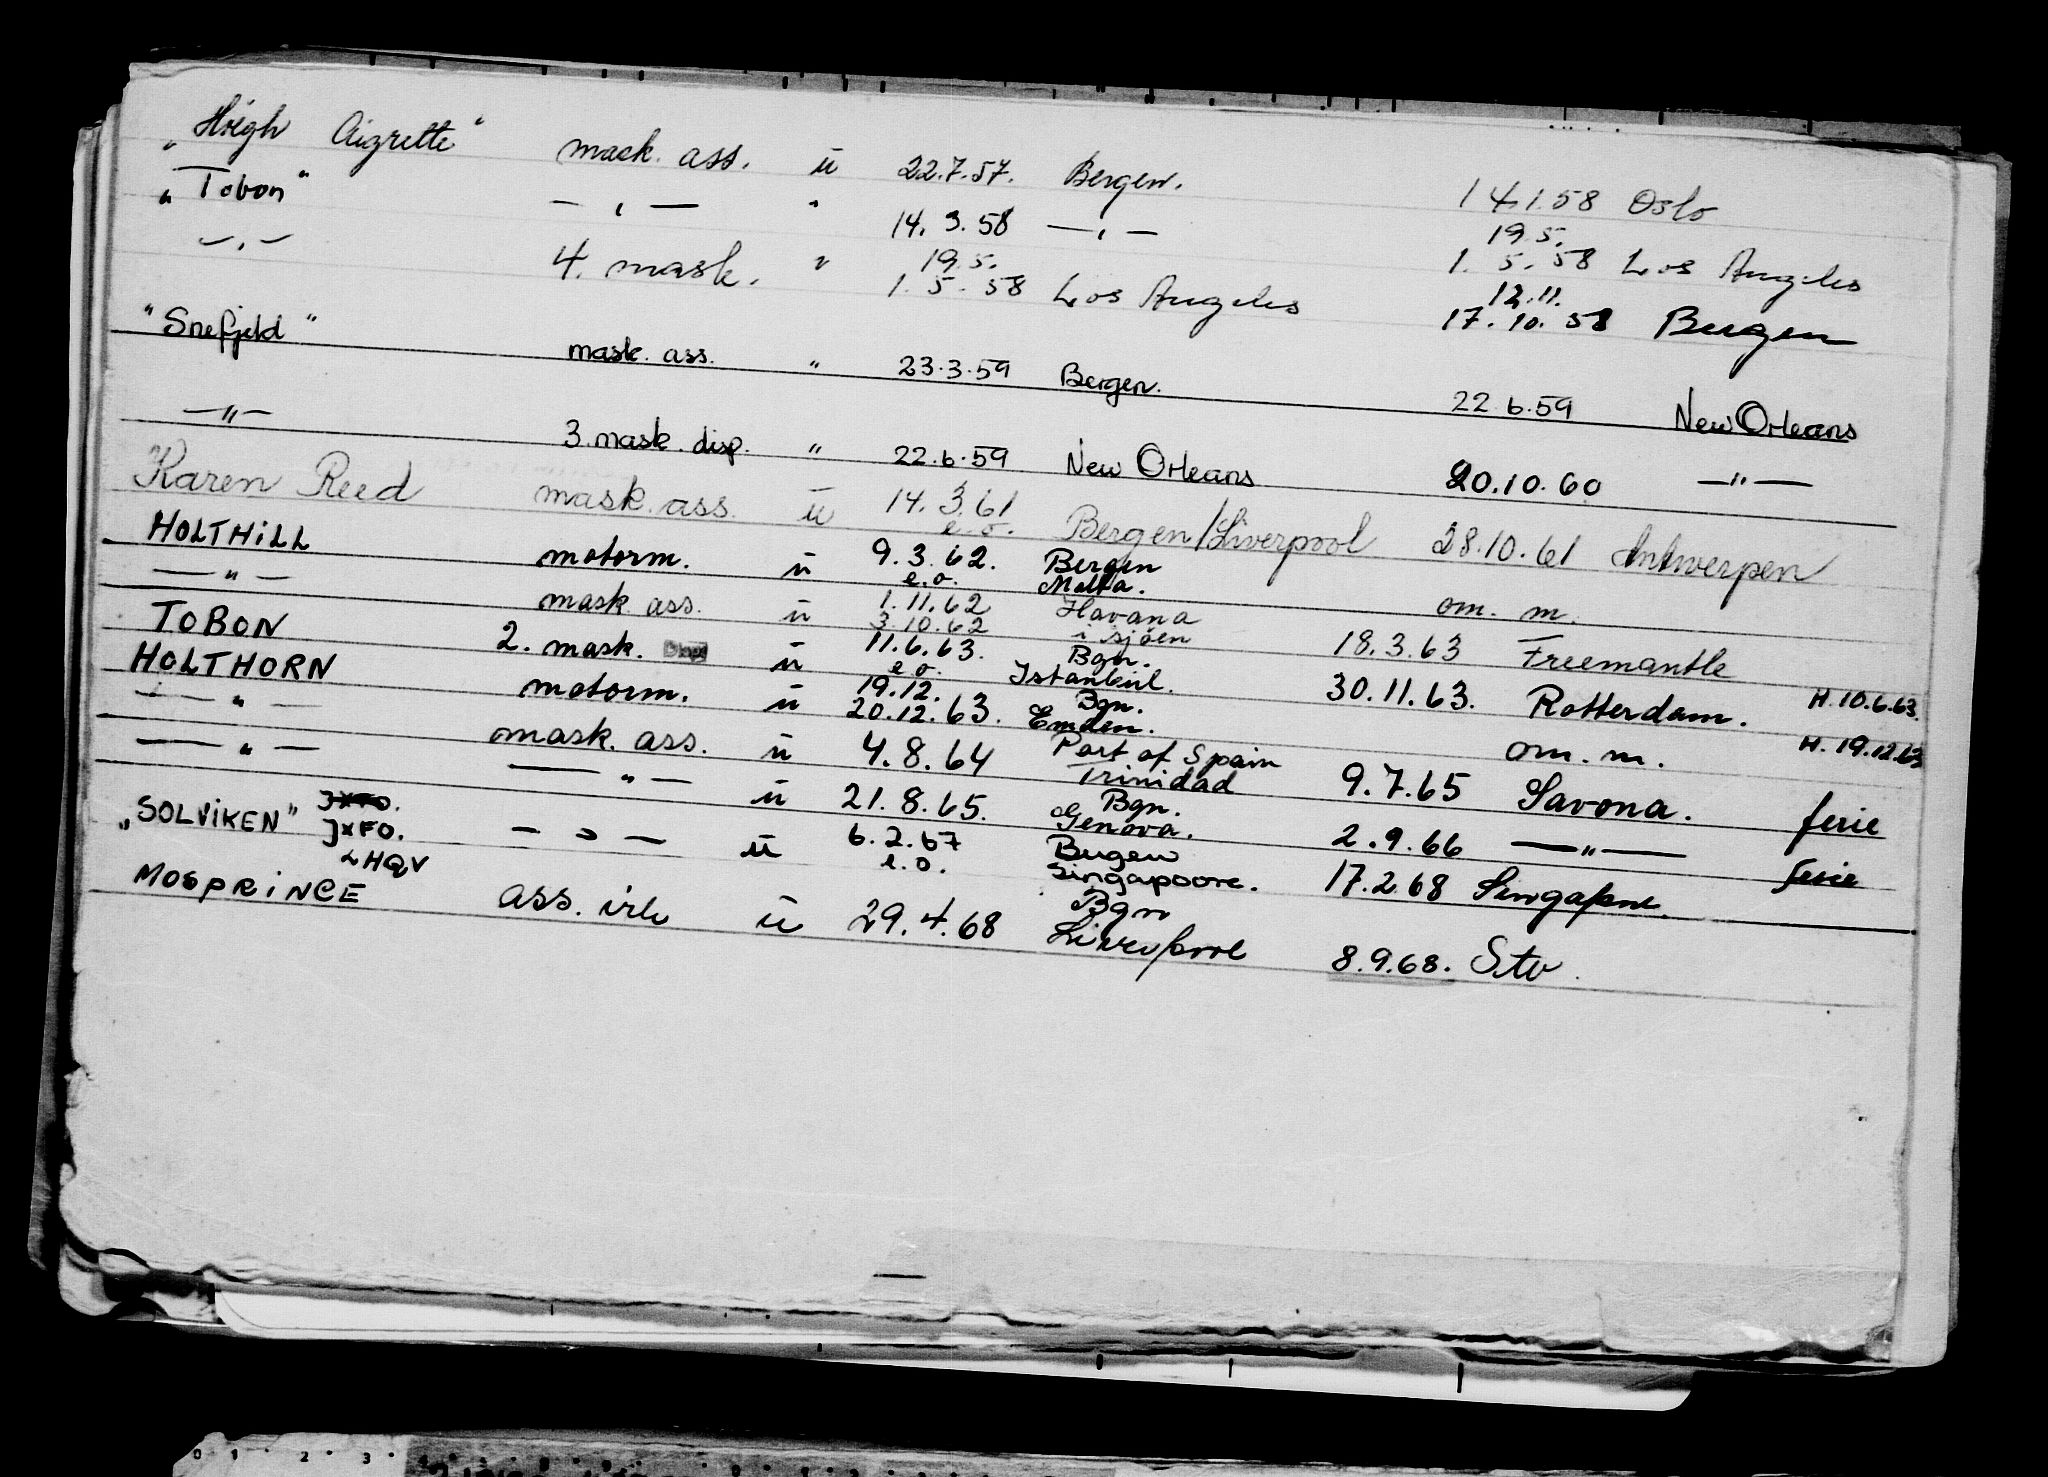 „Höegh Aigrette" mask. ass. ü 22.7.57. Bergen. 14.1.58 Oslo
„Tobon" — „ — " 14. 3. 58 — „ — 19.5. 1. 5. 58 Los Angeles
— „ — 4. mask. " 19.5. 1. 5. 58 Los Angeles 12.11. 17. 10. 58 Bergen
"Snefjeld" mask. ass. " 23.3.59 Bergen. 22.6.59 New Orleans
— " — 3. mask. disp. " 22.6.59 New Orleans 20.10.60 — " —
Karen Reed mask. ass. ü 14. 3. 61 e.o. Bergen/Liverpool 28.10.61 Antwerpen
HOLTHILL motorm. ü 9.3.62. e.o. Bergen Malta. om. m.
— " — mask. ass. ü 1.11.62 3.10.62 Havana i sjöen 18.3.63 Freemantle
TOBON 2. mask. Disp ü 11.6.63. e.o. Bgn. Istanbul. 30.11.63. Rotterdam. H. 10.6.63.
HOLTHORN motorm. ü 19.12. 20.12.63. Bgn. Emden. om. m. H. 19.12.63
— " — mask. ass. ü 4.8.64 Port of Spain Trinidad 9.7.65 Savona. ferie
— " — — " — ü 21.8.65. Bgn. Genova. 2.9.66 — " — ferie
„SOLVIKEN" JXFO. JXFO. — " — ü 6.2.67 e.o. Bergen Singapoore. 17.2.68 Singapore.
LHQV
MOSPRINCE ass. ü 29.4.68 Bgn Liverpool 8.9.68. Stv.
0 1 2 3